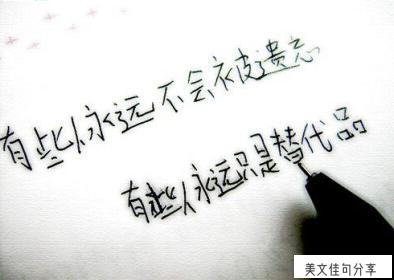 有些人永远不会被遗忘
有些人永远只是替代品
美文佳句分享